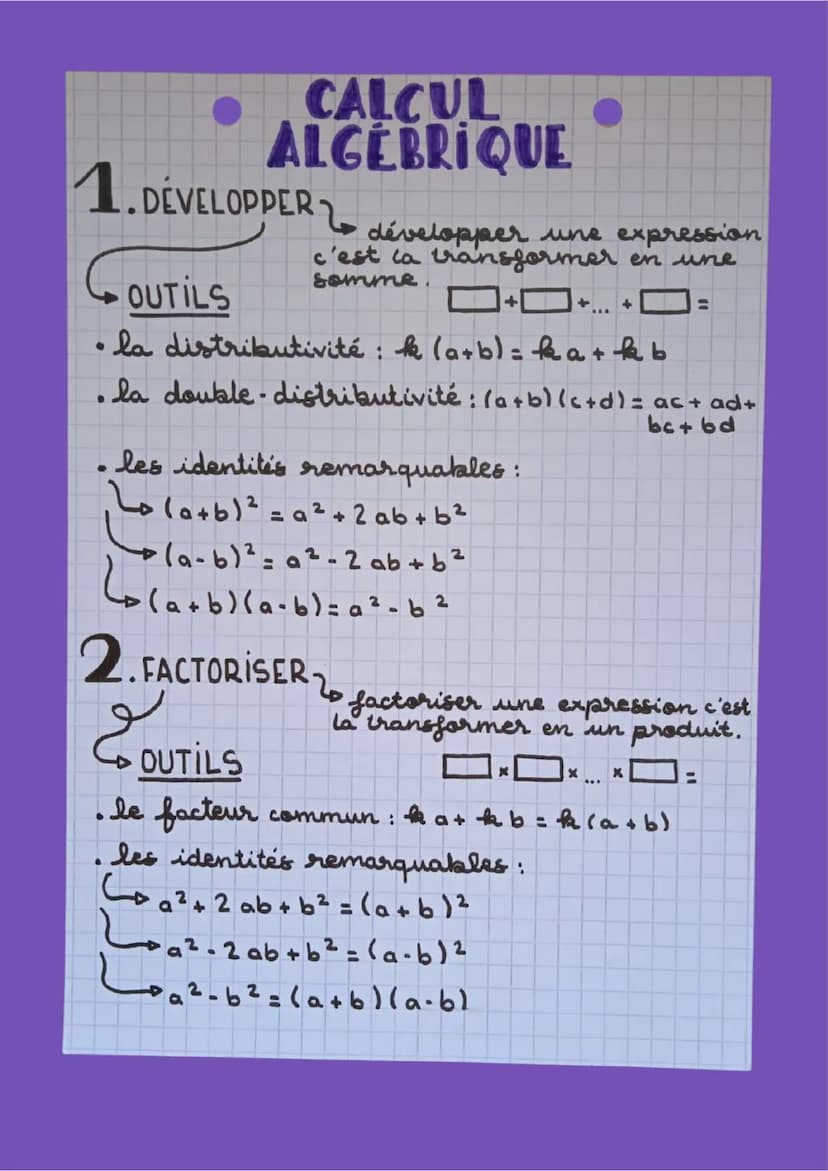 CALCUL
ALGÉBRIQUE
1. DÉVELOPPER
développer une expression
c'est la transformer en une
somme.
OUTILS
□+□+...+□=
• la distributivité : k (a+b) = k a + k b
• la double-distributivité : (a+b)(c+d) = ac + ad +
bc + bd
• les identités remarquables :
(a+b)² = a² + 2 ab + b²
(a-b)² = a² - 2 ab + b²
(a+b)(a-b) = a² - b²
2. FACTORISER
factoriser une expression c'est
la transformer en un produit.
OUTILS
□×□×...×□=
• le facteur commun : k a + k b = k (a + b)
• les identités remarquables :
a² + 2 ab + b² = (a + b)²
a² - 2 ab + b² = (a-b)²
a² - b² = (a + b)(a-b)